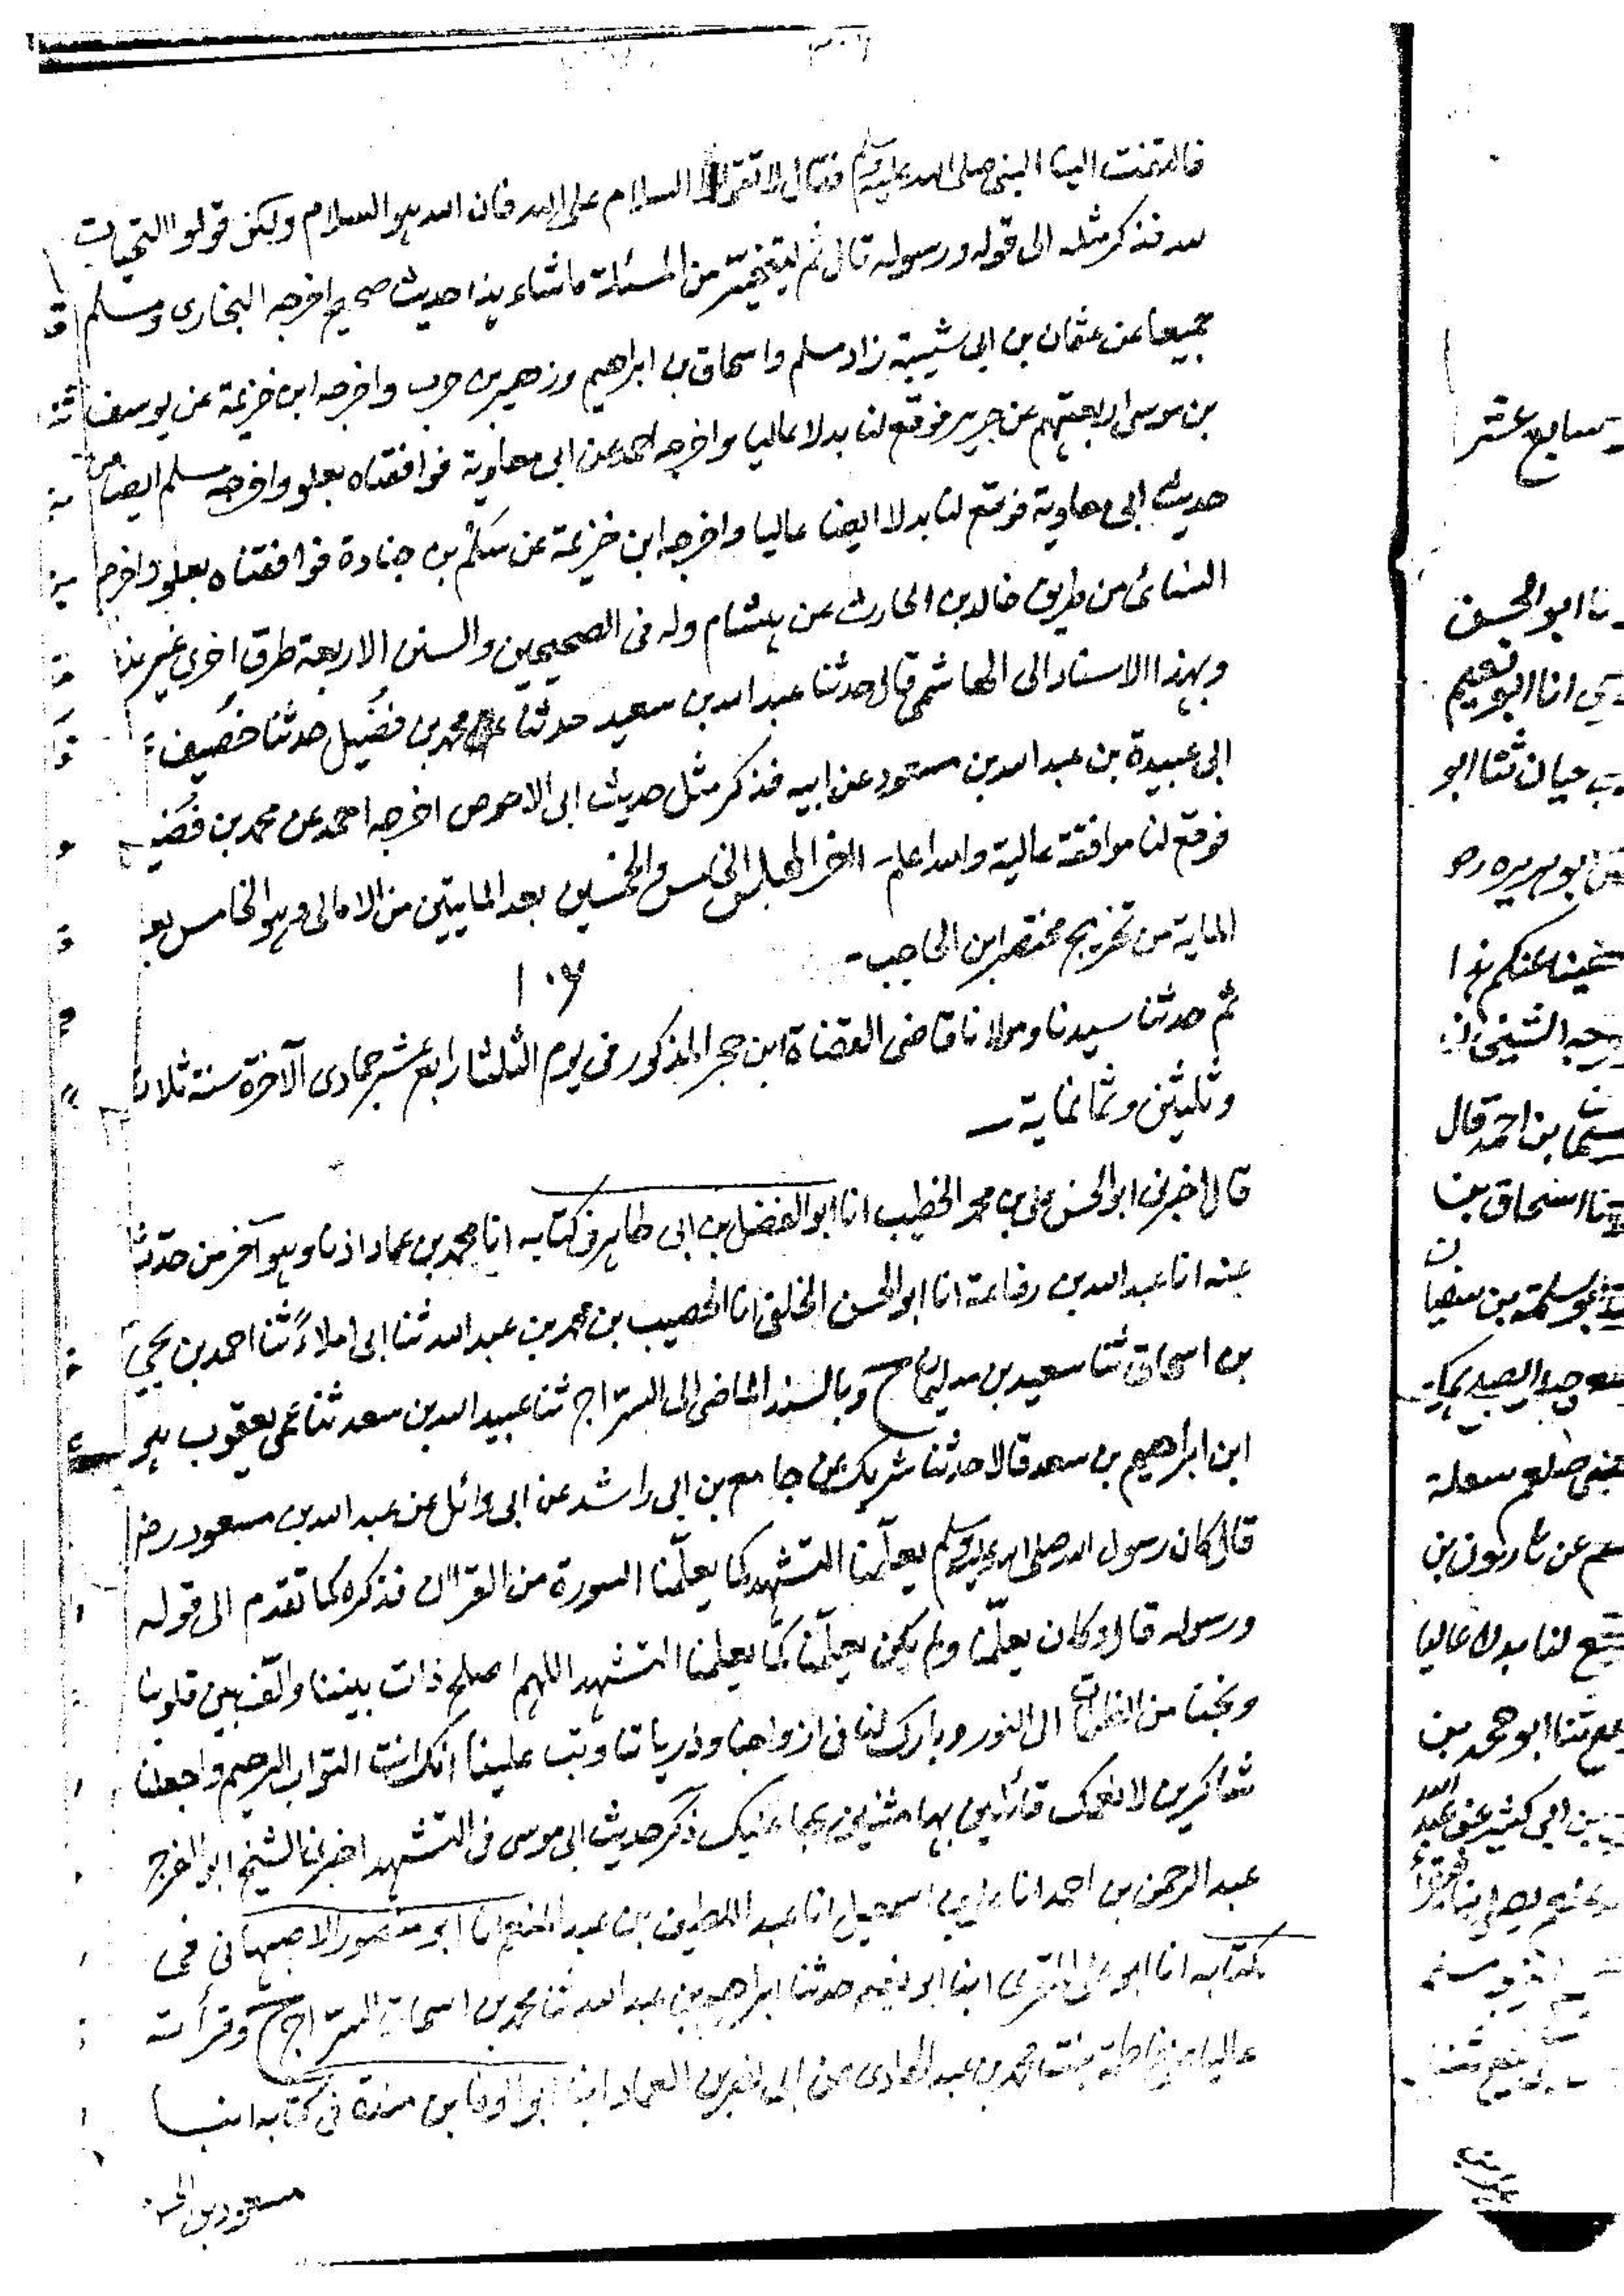 فالتفت الينا النبى صلى الله عليه وسلم فقال لا تقولوا السلام على الله فان الله هو السلام ولكن قولوا التحيات
لله فذكر مثله الى قوله ورسوله قال ثم ليتخير من المسئلة ماشاء هذا حديث صحيح اخرجه البخارى ومسلم
جميعا عن عثمان بن ابى شيبة زاد مسلم واسحاق بن ابراهيم وزهير بن حرب واخرجه ابن خزيمة عن يوسف
بن موسى اربعتهم عن جرير فوقع لنا بدلا عاليا واخرجه احمد عن ابى معاوية فوافقناه بعلو واخرجه مسلم ايضا من
حديث ابى معاوية فوقع لنا بدلا ايضا عاليا واخرجه ابن خزيمة عن سلم بن جنادة فوافقناه بعلو واخرج
النسائى من طريق خالد بن الحارث عن هشام وله فى الصحيحين والسنن الاربعة طرق اخرى غير هذا
وبهذا الاسناد الى الهاشمى قال حدثنا عبد الله بن سعيد حدثنا محمد بن فضيل حدثنا خصيف
ابى عبيدة بن عبد الله بن مسعود عن ابيه فذكر مثل حديث ابى الاحوص اخرجه احمد عن محمد بن فضيل
فوقع لنا موافقة عالية والله اعلم آخر المجلس الخامس والخمسين بعد المايتين من الامالى وهو الخامس بعد
الماية من تخريج مختصر ابن الحاجب
١٠٦
ثم حدثنا سيدنا ومولانا قاضى القضاة ابن حجر المذكور فى يوم الثلثا رابع عشر جمادى الآخرة سنة ثلاث
وثلثين وثمانماية
قال اخبرنى ابو الحسن على بن محمد الخطيب انا ابو الفضل بن ابى طاهر فى كتابه انا محمد بن عماد اذنا وهو آخر من حدثنا
عنه انا عبد الله بن رفاعة انا ابو الحسن الخلعى انا الخصيب بن محمد بن عبد الله ثنا ابى املاءً ثنا احمد بن يحيى
بن اسحاق ثنا سعيد بن سليمان ح وبالسند الماضى الى السراج ثنا عبيد الله بن سعد ثنا عمى يعقوب هو
ابن ابراهيم بن سعد قالا حدثنا شريك عن جامع بن ابى راشد عن ابى وائل عن عبد الله بن مسعود رضى
قال كان رسول الله صلى الله عليه وسلم يعلّمنا التشهد كما يعلّمنا السورة من القرآن فذكره كما تقدم الى قوله
ورسوله قال وكان يعلّمنا ولم يكن يعلّمنا كما يعلمنا التشهد اللهم اصلح ذات بيننا والّف بين قلوبنا
ونجنا من الظلمات الى النور وبارك لنا فى ازواجنا وذرياتنا وتب علينا انك انت التواب الرحيم واجعلنا
شاكرين لانعمك قائلين بها مثنين بها عليك ذكر حديث ابى موسى فى التشهد اخبرنا الشيخ ابو الفرج
عبد الرحمن بن احمد انا على بن اسمعيل انا عبد اللطيف بن عبد المنعم انا ابو منصور الاصبهانى فى
كتابه انا ابو على المقرى ابنا ابو نعيم حدثنا ابراهيم بن عبد الله ثنا محمد بن اسحاق السراج ح وقرأت
عاليا على فاطمة بنت محمد بن عبد الهادى عن ابى نصر بن العماد ابنا ابو الوفا بن مندة فى كتابه ابنا
مسعود بن الحسن
سابع عشر
نا ابو الحسن
انا ابو نعيم
بن حيان ثنا ابو
ابو هريرة رضى
عنكم هذا
بن احمد قال
اسحاق بن
سلمة بن سفيان
سعلة
عن هارون بن
لنا بدلا عاليا
ثنا ابو محمد بن
بن ابى كثير عن عبد الله